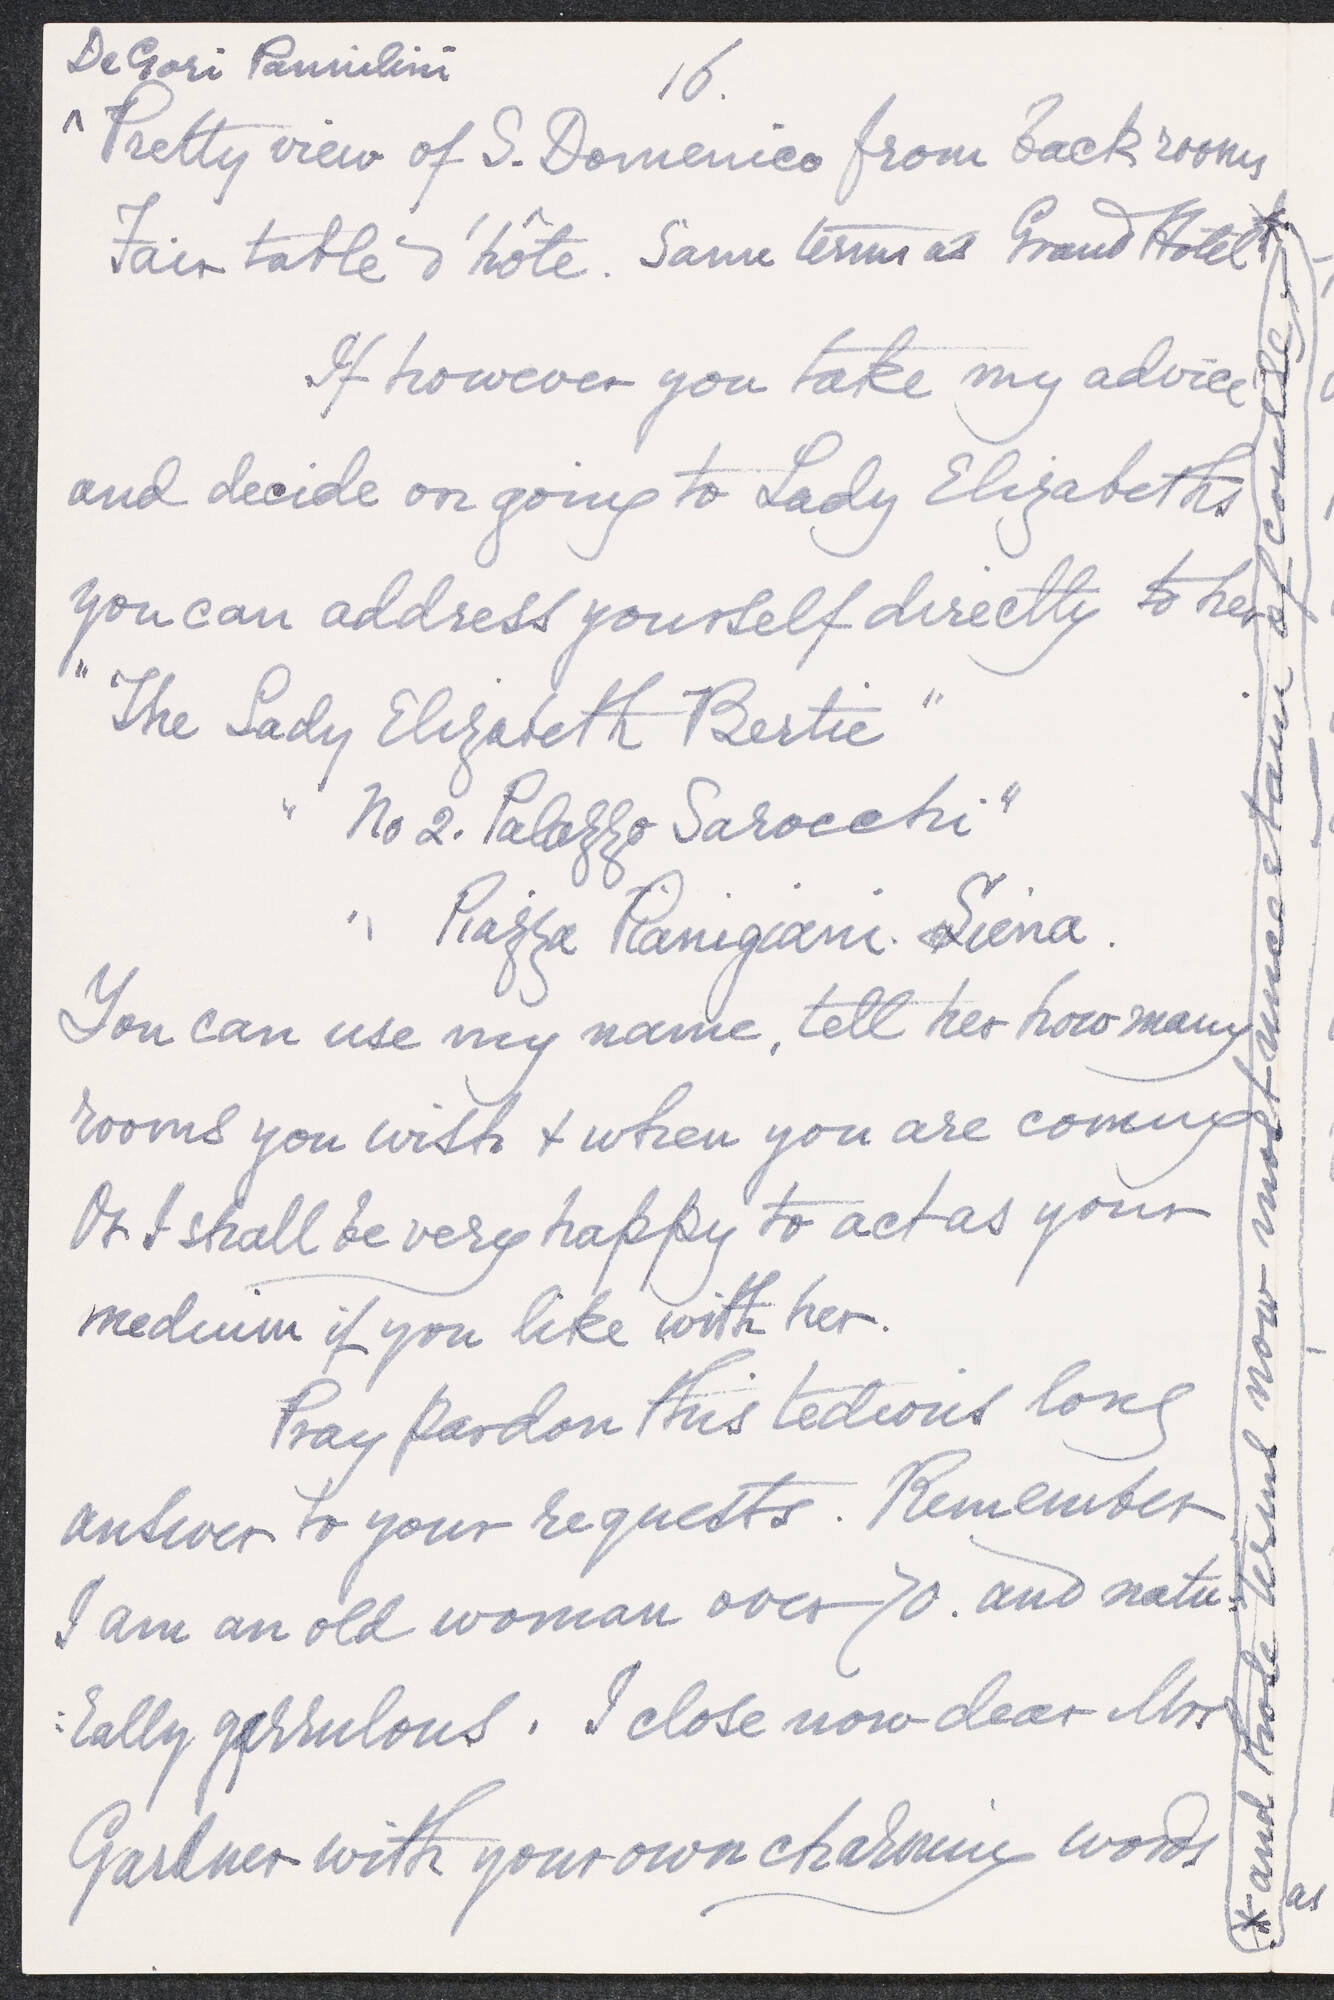 De Gori Pannilini
16.
^ Pretty view of S. Domenico from back rooms
Fair table d'hôte. Same terms as Grand Hotel*
If however you take my advice
and decide on going to Lady Elizabeths
you can address yourself directly to her
"The Lady Elizabeth Bertie"
" No 2. Palazzo Sarocchi"
" Piazza Pianigiani. Siena.
You can use my name, tell her how many
rooms you wish + when you are coming
Or I shall be very happy to act as your
medium if you like with her.
Pray pardon this tedious long
answer to your requests. Remember
I am an old woman over 70. and natu-
:rally garrulous. I close now dear Mrs
Gardner with your own charming words
* and those terms now most uncertain of course
as